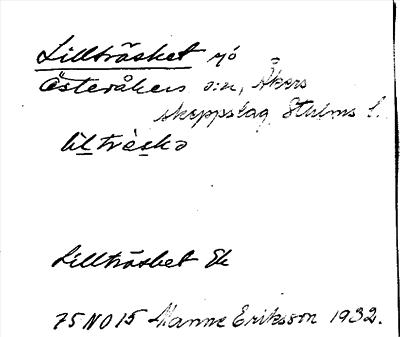 Lillträsket sjö
Österåkers s:n, Åkers
skeppslag, Sthlms l.
lìltrèskə
Lillträsket Ek
75 NO 15 Manne Eriksson 1932.